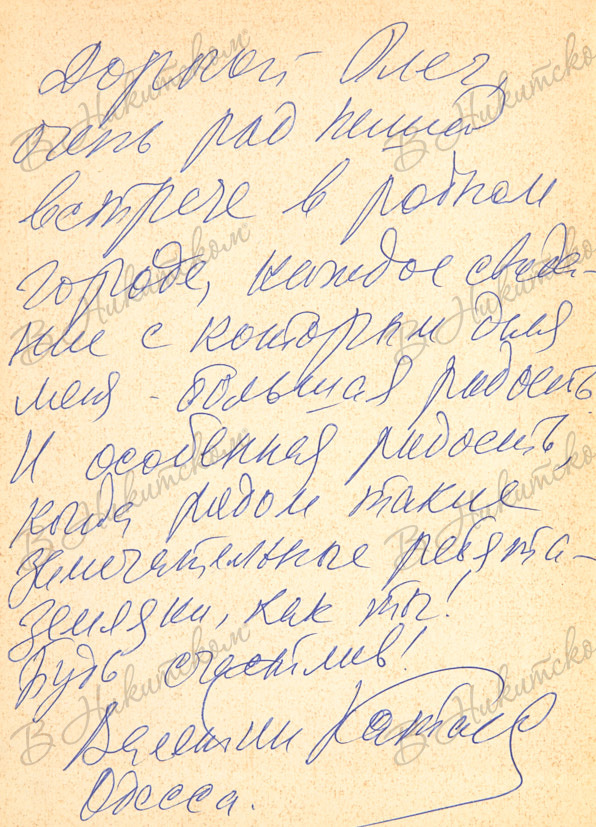 Дорогой Олег,
очень рад нашей
встрече в родном
городе, каждое свида-
ние с которым для
меня - большая радость.
И особенная радость,
когда рядом такие
замечательные ребята-
земляки, как ты!
Будь счастлив!
Валентин Катаев
Одесса.
В Никитском
В Никитско
В Никитском
В Никитско
В Никитском
В Никитско
В Никитском
В Никитско